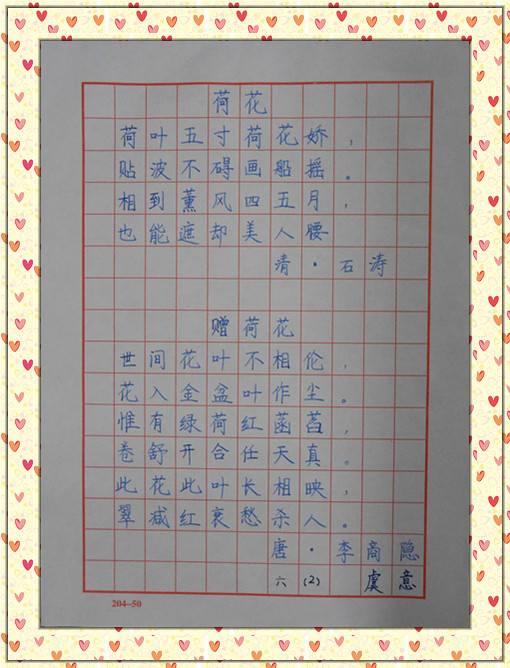 荷花
荷叶五寸荷花娇，
贴波不碍画船摇。
相到薰风四五月，
也能遮却美人腰
清·石涛
赠荷花
世间花叶不相伦，
花入金盆叶作尘。
惟有绿荷红菡萏，
卷舒开合任天真。
此花此叶长相映，
翠减红衰愁杀人。
唐·李商隐
六（2） 虞意
204-50